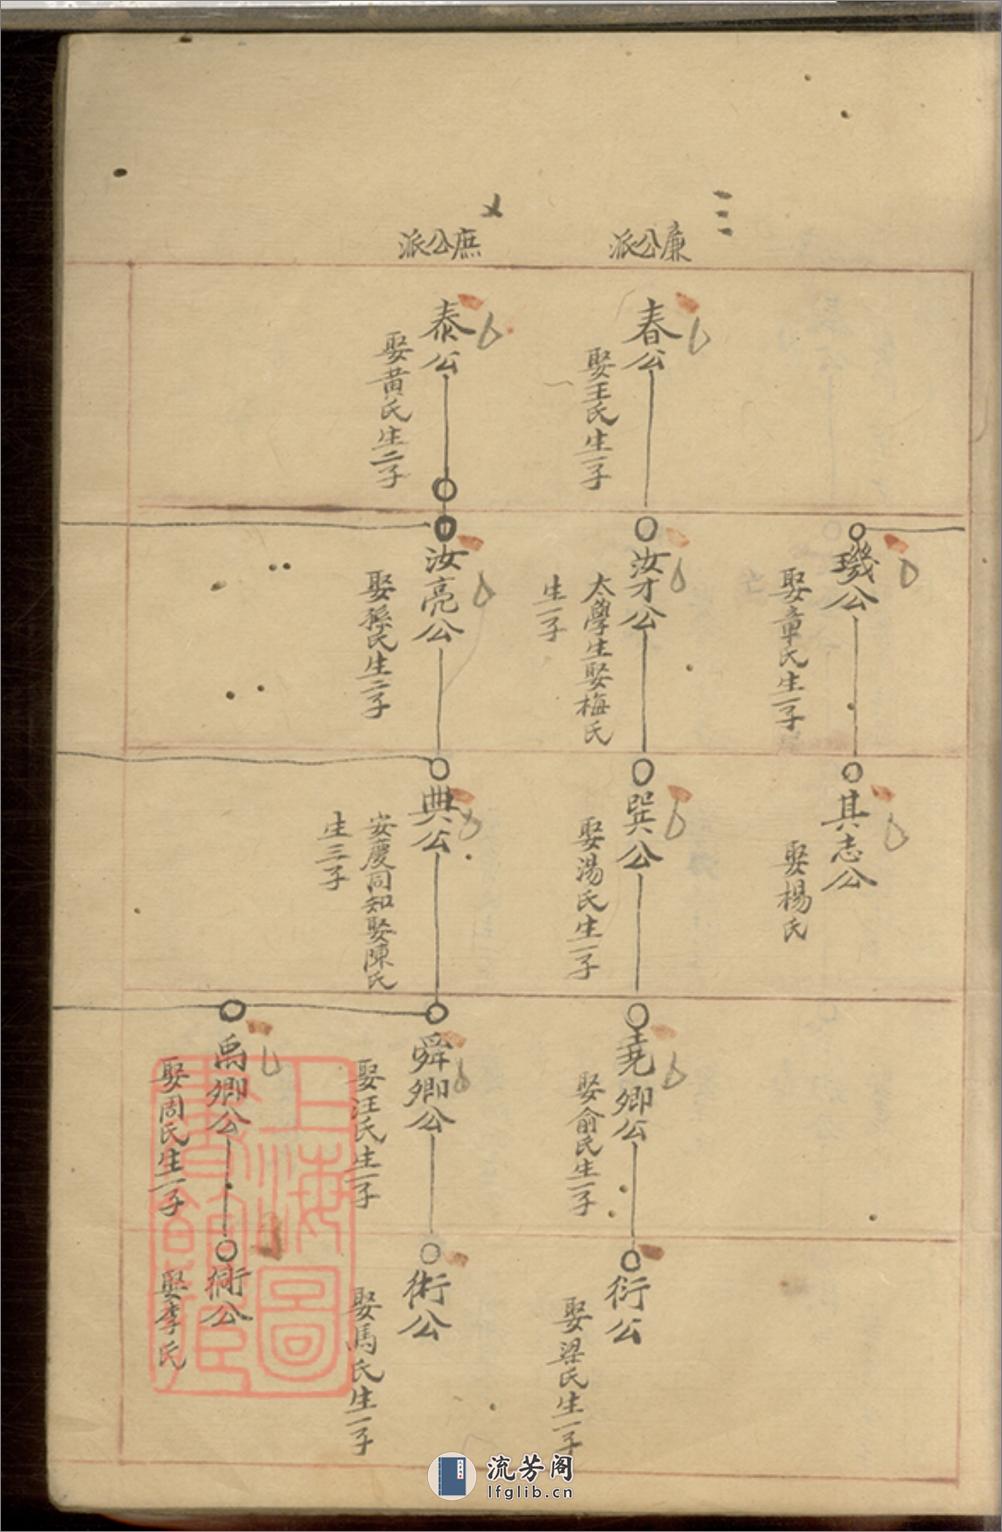 廉公派
庶公派
春公
娶王氏生一子
泰公
娶黃氏生二子
璣公
娶章氏生一子
汝才公
太學生娶梅氏
生一子
汝亮公
娶孫氏生二子
其志公
娶楊氏
巽公
娶湯氏生一子
典公
安慶同知娶陳氏
生三子
堯卿公
娶俞氏生一子
舜卿公
娶汪氏生一子
禹卿公
娶周氏生一子
衍公
娶梁氏生一子
術公
娶馬氏生一子
公
娶李氏
上海圖
書館藏
流芳阁
lfglib.cn